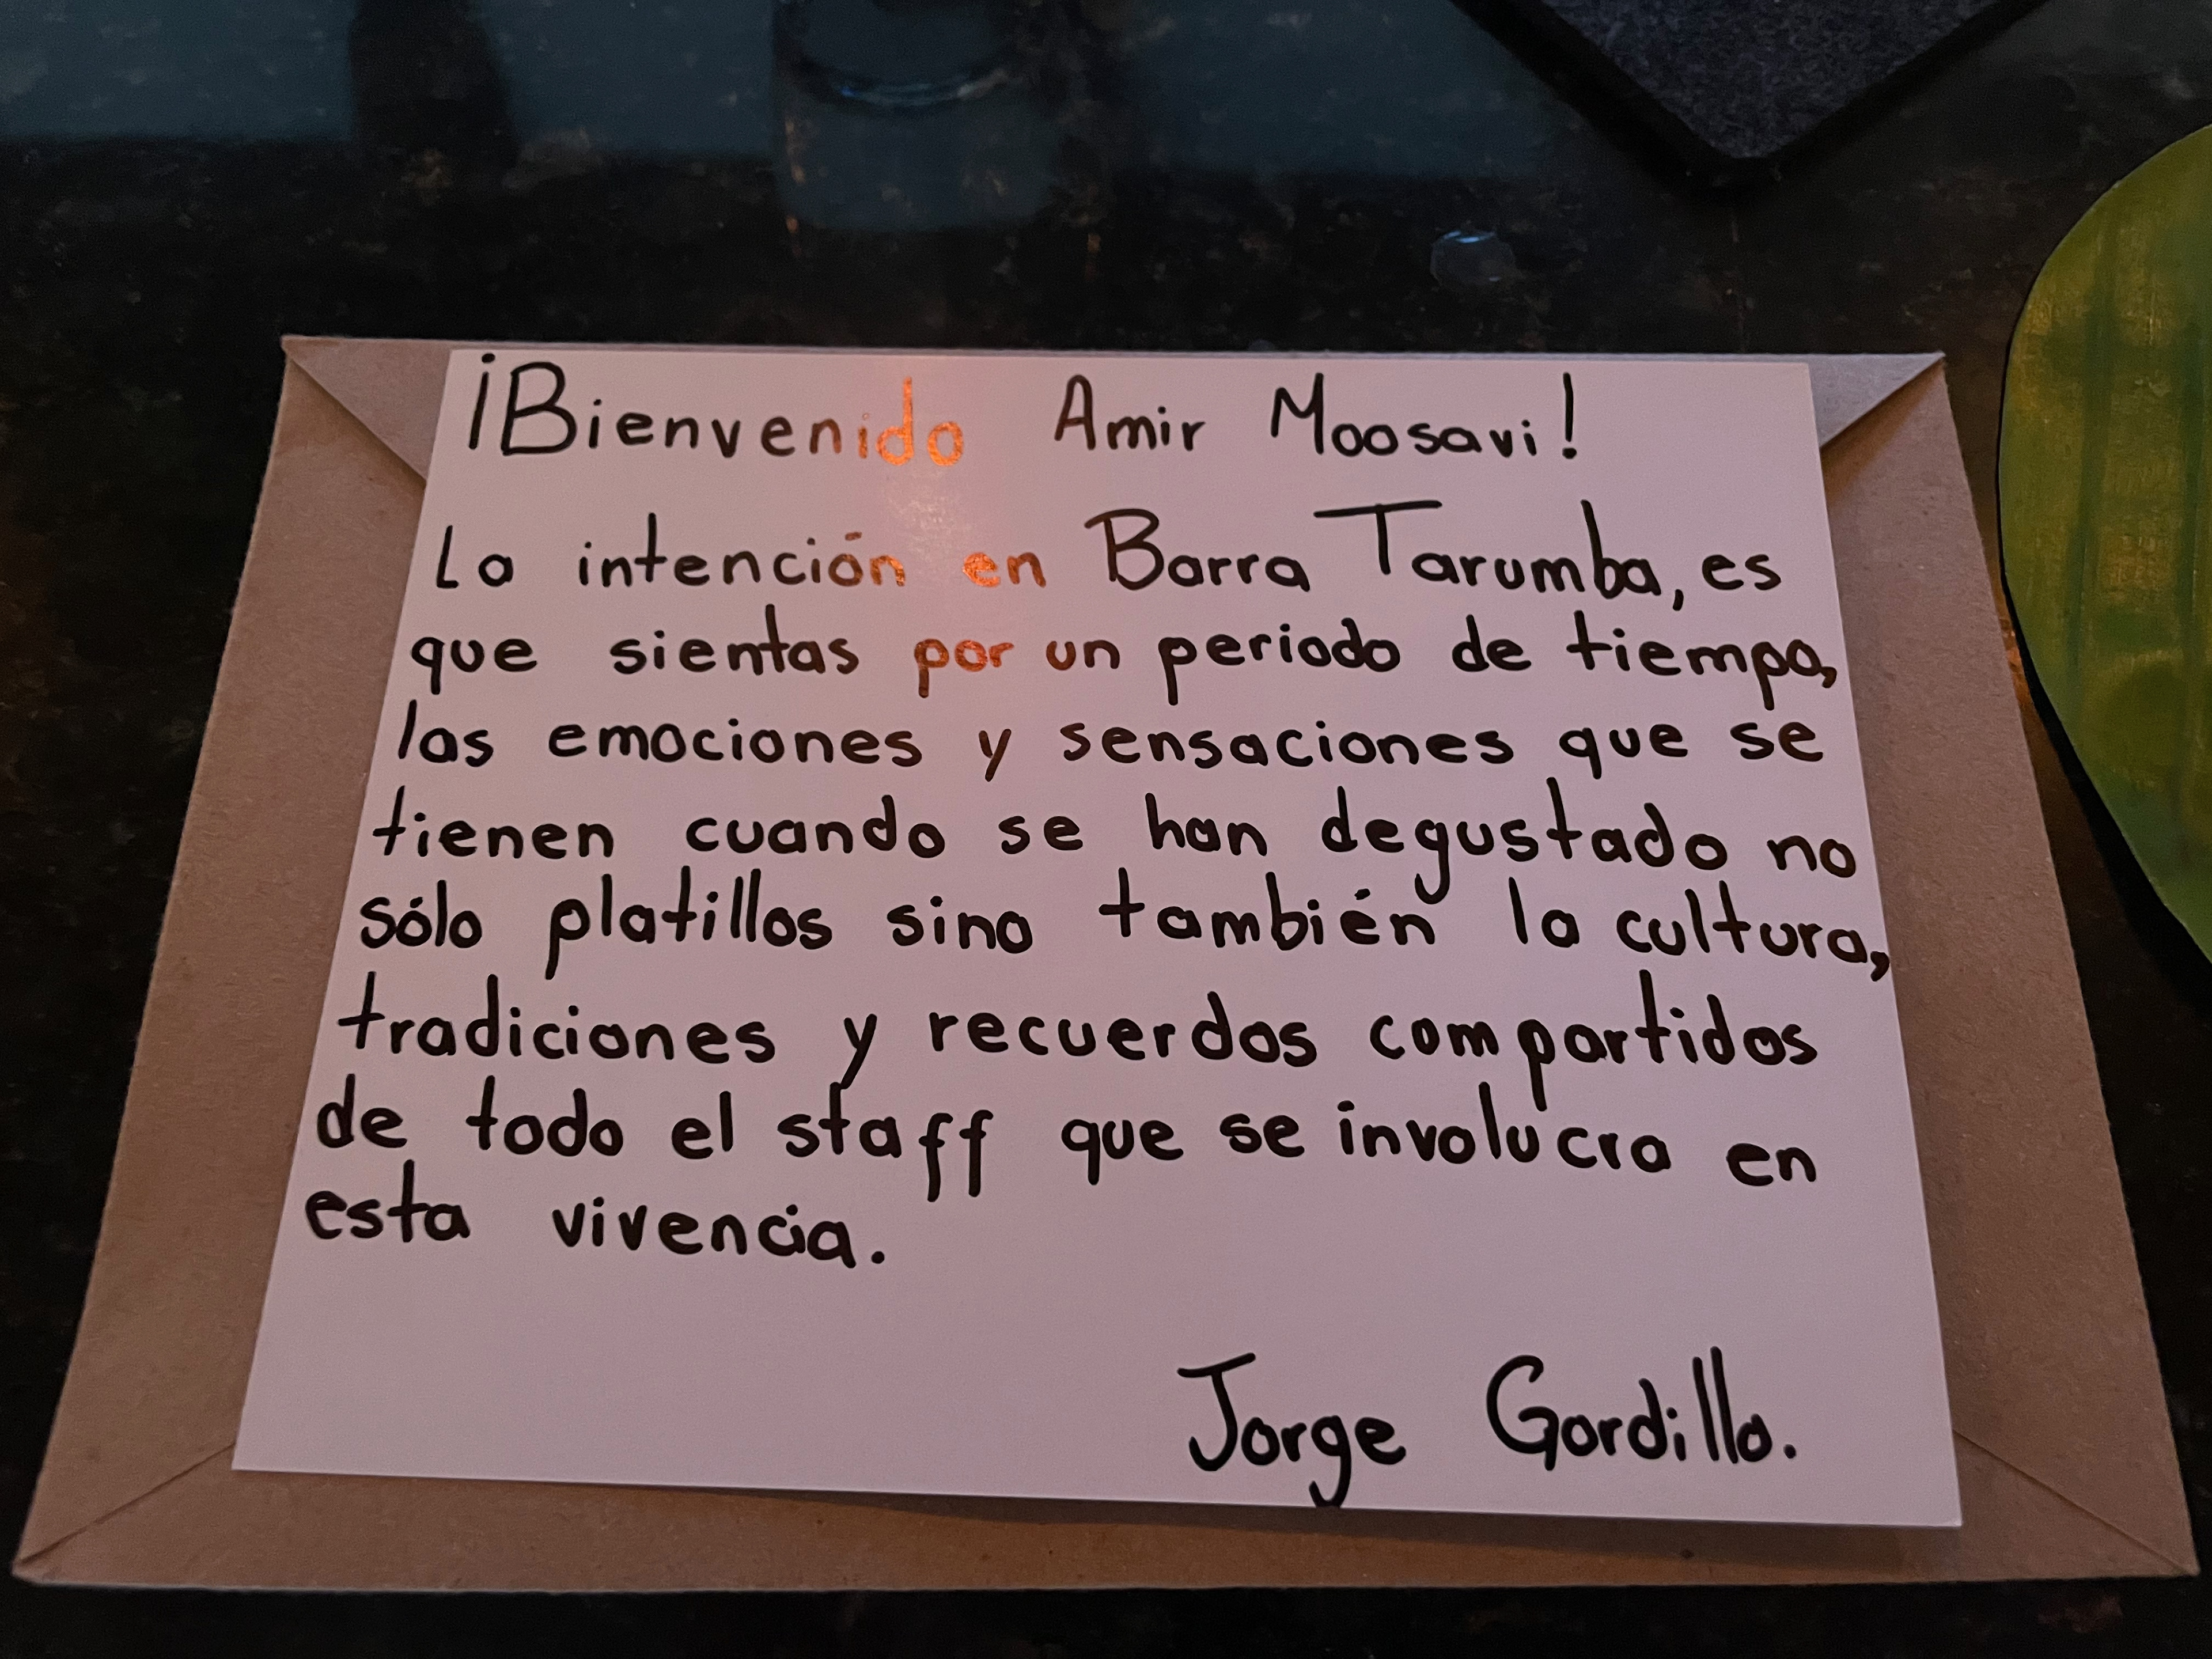 ¡Bienvenido Amir Moosavi!
La intención en Barra Tarumba, es
que sientas por un periodo de tiempo,
las emociones y sensaciones que se
tienen cuando se han degustado no
sólo platillos sino también la cultura,
tradiciones y recuerdos compartidos
de todo el staff que se involucra en
esta vivencia.
Jorge Gordillo.